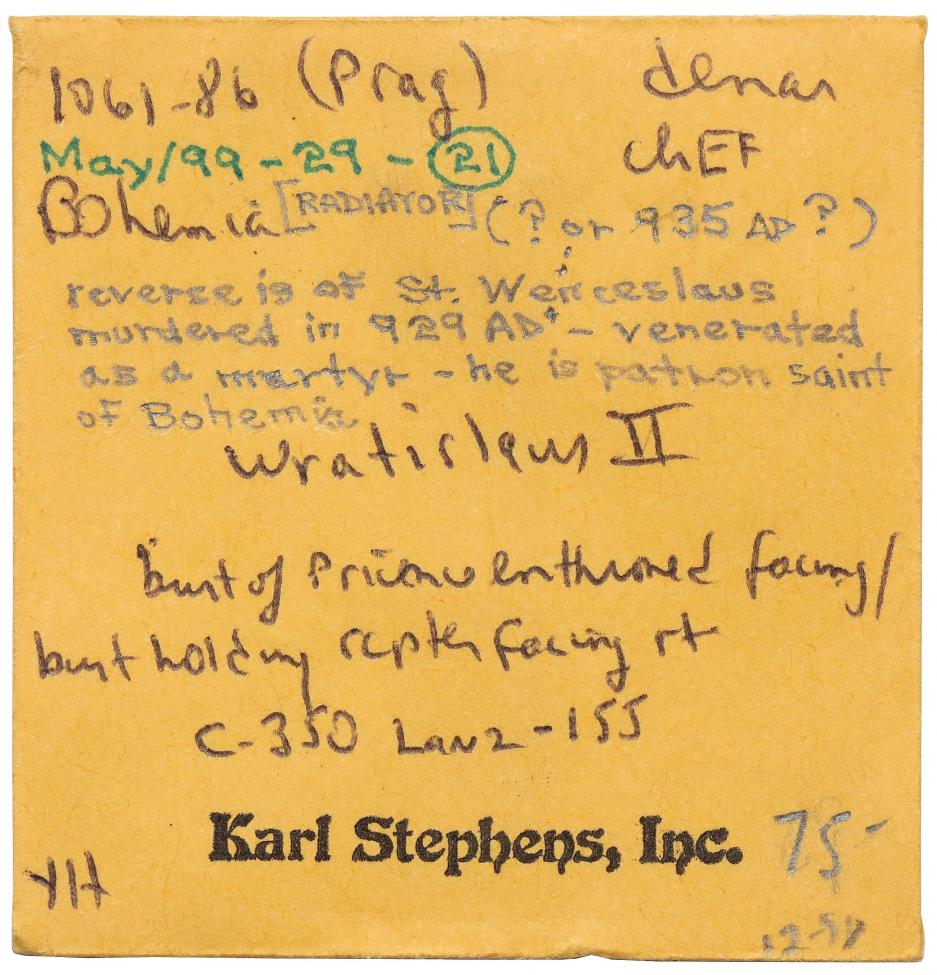 1061-86 (Prag) denar
May/99 - 29 - 21 chEF
Bohemia [RADIATOR] (? or 935 AD ?)
reverse is of St. Wenceslaus
murdered in 929 AD - venerated
as a martyr - he is patron saint
of Bohemia
Wratislaus II
bust of enthroned facing/
bust holding scepter facing rt
C-350 Lanz-155
Karl Stephens, Inc. 75-